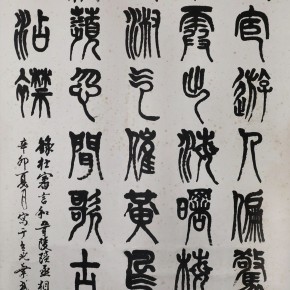 宦遊人偏驚
霞出海曙梅
淑气催黃鳥
蘋忽聞歌古
沾襟
錄杜審言和晉陵陸丞相
辛卯夏月寫于